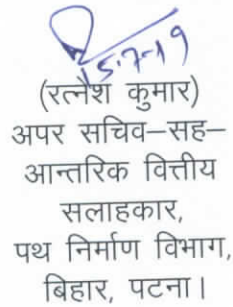 15.7-19
(रत्नेश कुमार)
अपर सचिव–सह–
आन्तरिक वित्तीय
सलाहकार,
पथ निर्माण विभाग,
बिहार, पटना।